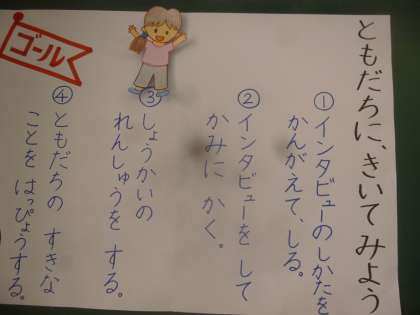 ともだちに、きいてみよう
①インタビューのしかたを
かんがえて、しる。
②インタビューを して
かみに かく。
③しょうかいの
れんしゅうを する。
④ともだちの すきな
ことを はっぴょうする。
ゴール